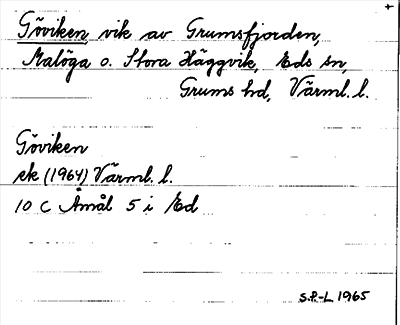 Göviken, vik av Grumsfjorden,
Malöga o. Stora Häggvik, Eds sn,
Grums hd, Värml. l.
Göviken
ek (1964) Värml. l.
10 C Åmål 5 i Ed
S.P-L 1965